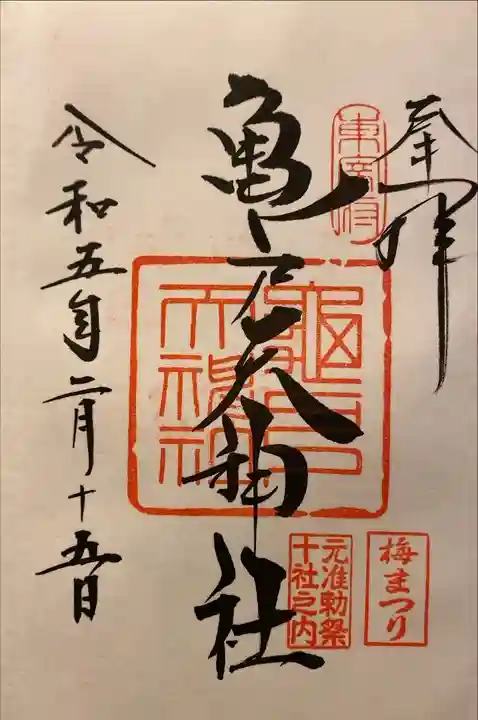 奉拝
東宰府
亀戸天神社
亀戸天神社
梅まつり
元准勅祭
十社之内
令和五年二月十五日